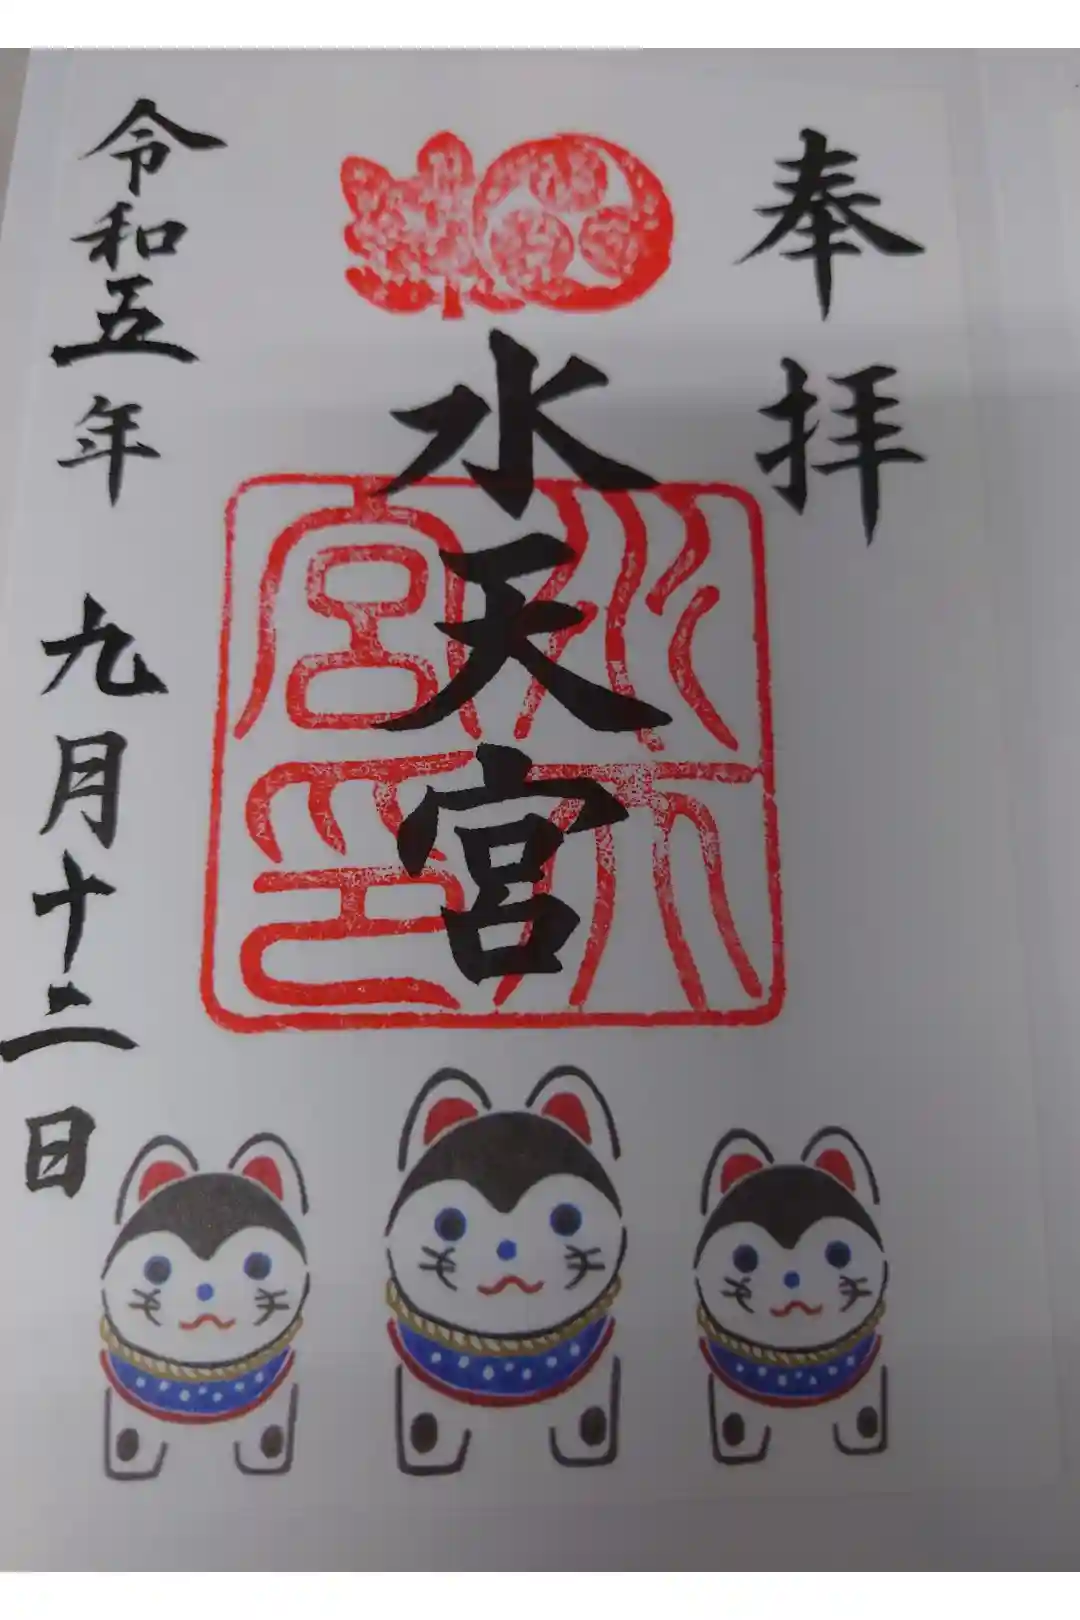 奉拝
水天宮
水天宮印
令和五年 九月十二日